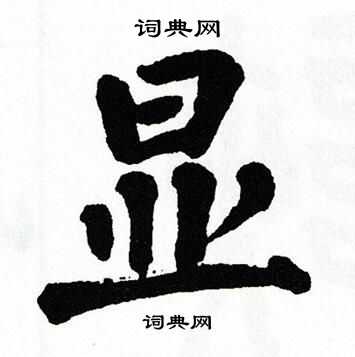 词典网
显
词典网